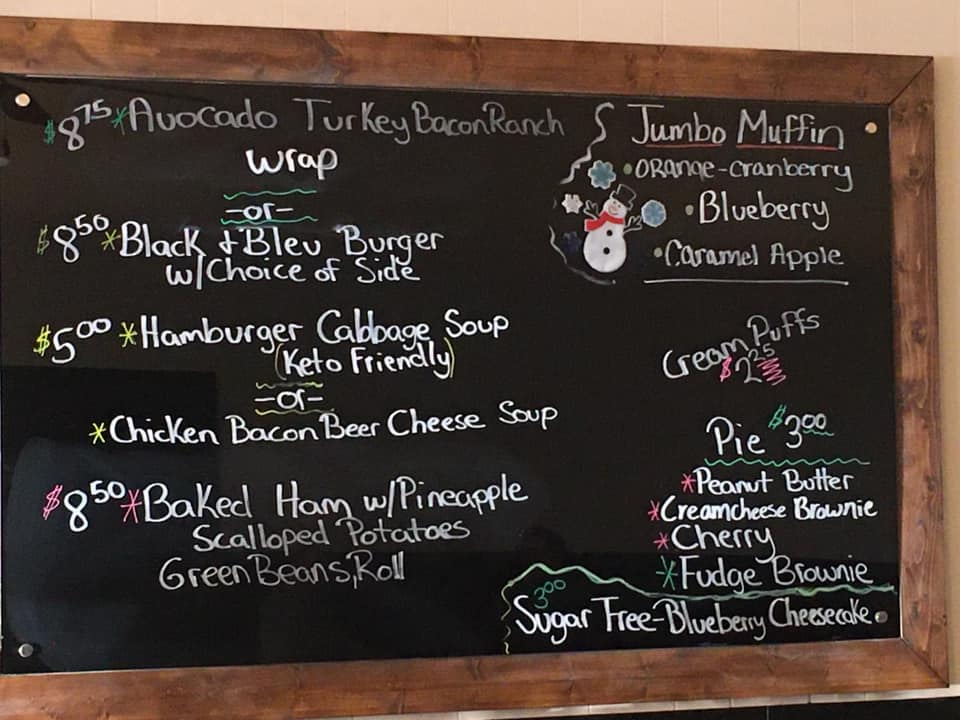 $8.75 *Avocado Turkey Bacon Ranch
Wrap
-or-
$8.50 *Black & Bleu Burger
w/Choice of Side
$5.00 *Hamburger Cabbage Soup
(Keto Friendly)
-or-
*Chicken Bacon Beer Cheese Soup
$8.50 *Baked Ham w/Pineapple
Scalloped Potatoes
Green Beans, Roll
Jumbo Muffin
•Orange-cranberry
•Blueberry
•Caramel Apple
Cream Puffs
$2.25
Pie $3.00
*Peanut Butter
*Creamcheese Brownie
*Cherry
*Fudge Brownie
3.00
Sugar Free-Blueberry Cheesecake